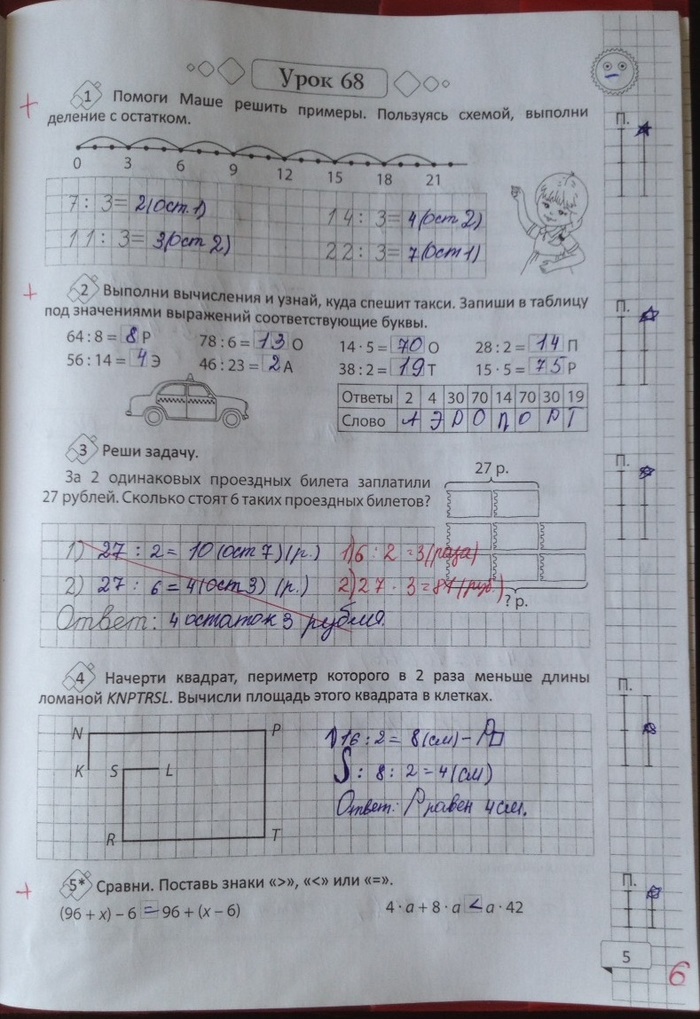 Урок 68
1 Помоги Маше решить примеры. Пользуясь схемой, выполни
деление с остатком.
0 3 6 9 12 15 18 21
7 : 3 = 2(ост.1) 14 : 3 = 4(ост 2)
11 : 3 = 3(ост 2) 22 : 3 = 7(ост 1)
2 Выполни вычисления и узнай, куда спешит такси. Запиши в таблицу
под значениями выражений соответствующие буквы.
64 : 8 = 8 Р 78 : 6 = 13 О 14 · 5 = 70 О 28 : 2 = 14 П
56 : 14 = 4 Э 46 : 23 = 2 А 38 : 2 = 19 Т 15 · 5 = 75 Р
Ответы 2 4 30 70 14 70 30 19
Слово А Э Р О П О Р Т
3 Реши задачу.
За 2 одинаковых проездных билета заплатили
27 рублей. Сколько стоят 6 таких проездных билетов?
27 р.
1) 27 : 2 = 10 (ост 7) (р.) 1) 6 : 2 = 3 (раза)
2) 27 : 6 = 4 (ост 3) (р.) 2) 27 · 3 = 81 (руб.)
? р.
Ответ: 4 остаток 3 рубля.
4 Начерти квадрат, периметр которого в 2 раза меньше длины
ломаной KNPTRSL. Вычисли площадь этого квадрата в клетках.
N P
K S L
R T
1) 16 : 2 = 8 (см) – P
S : 8 : 2 = 4 (см)
Ответ: P равен 4 см.
5* Сравни. Поставь знаки «>», «<» или «=».
(96 + x) – 6 = 96 + (x – 6) 4 · a + 8 · a < a · 42
П.
П.
П.
П.
П.
5
6